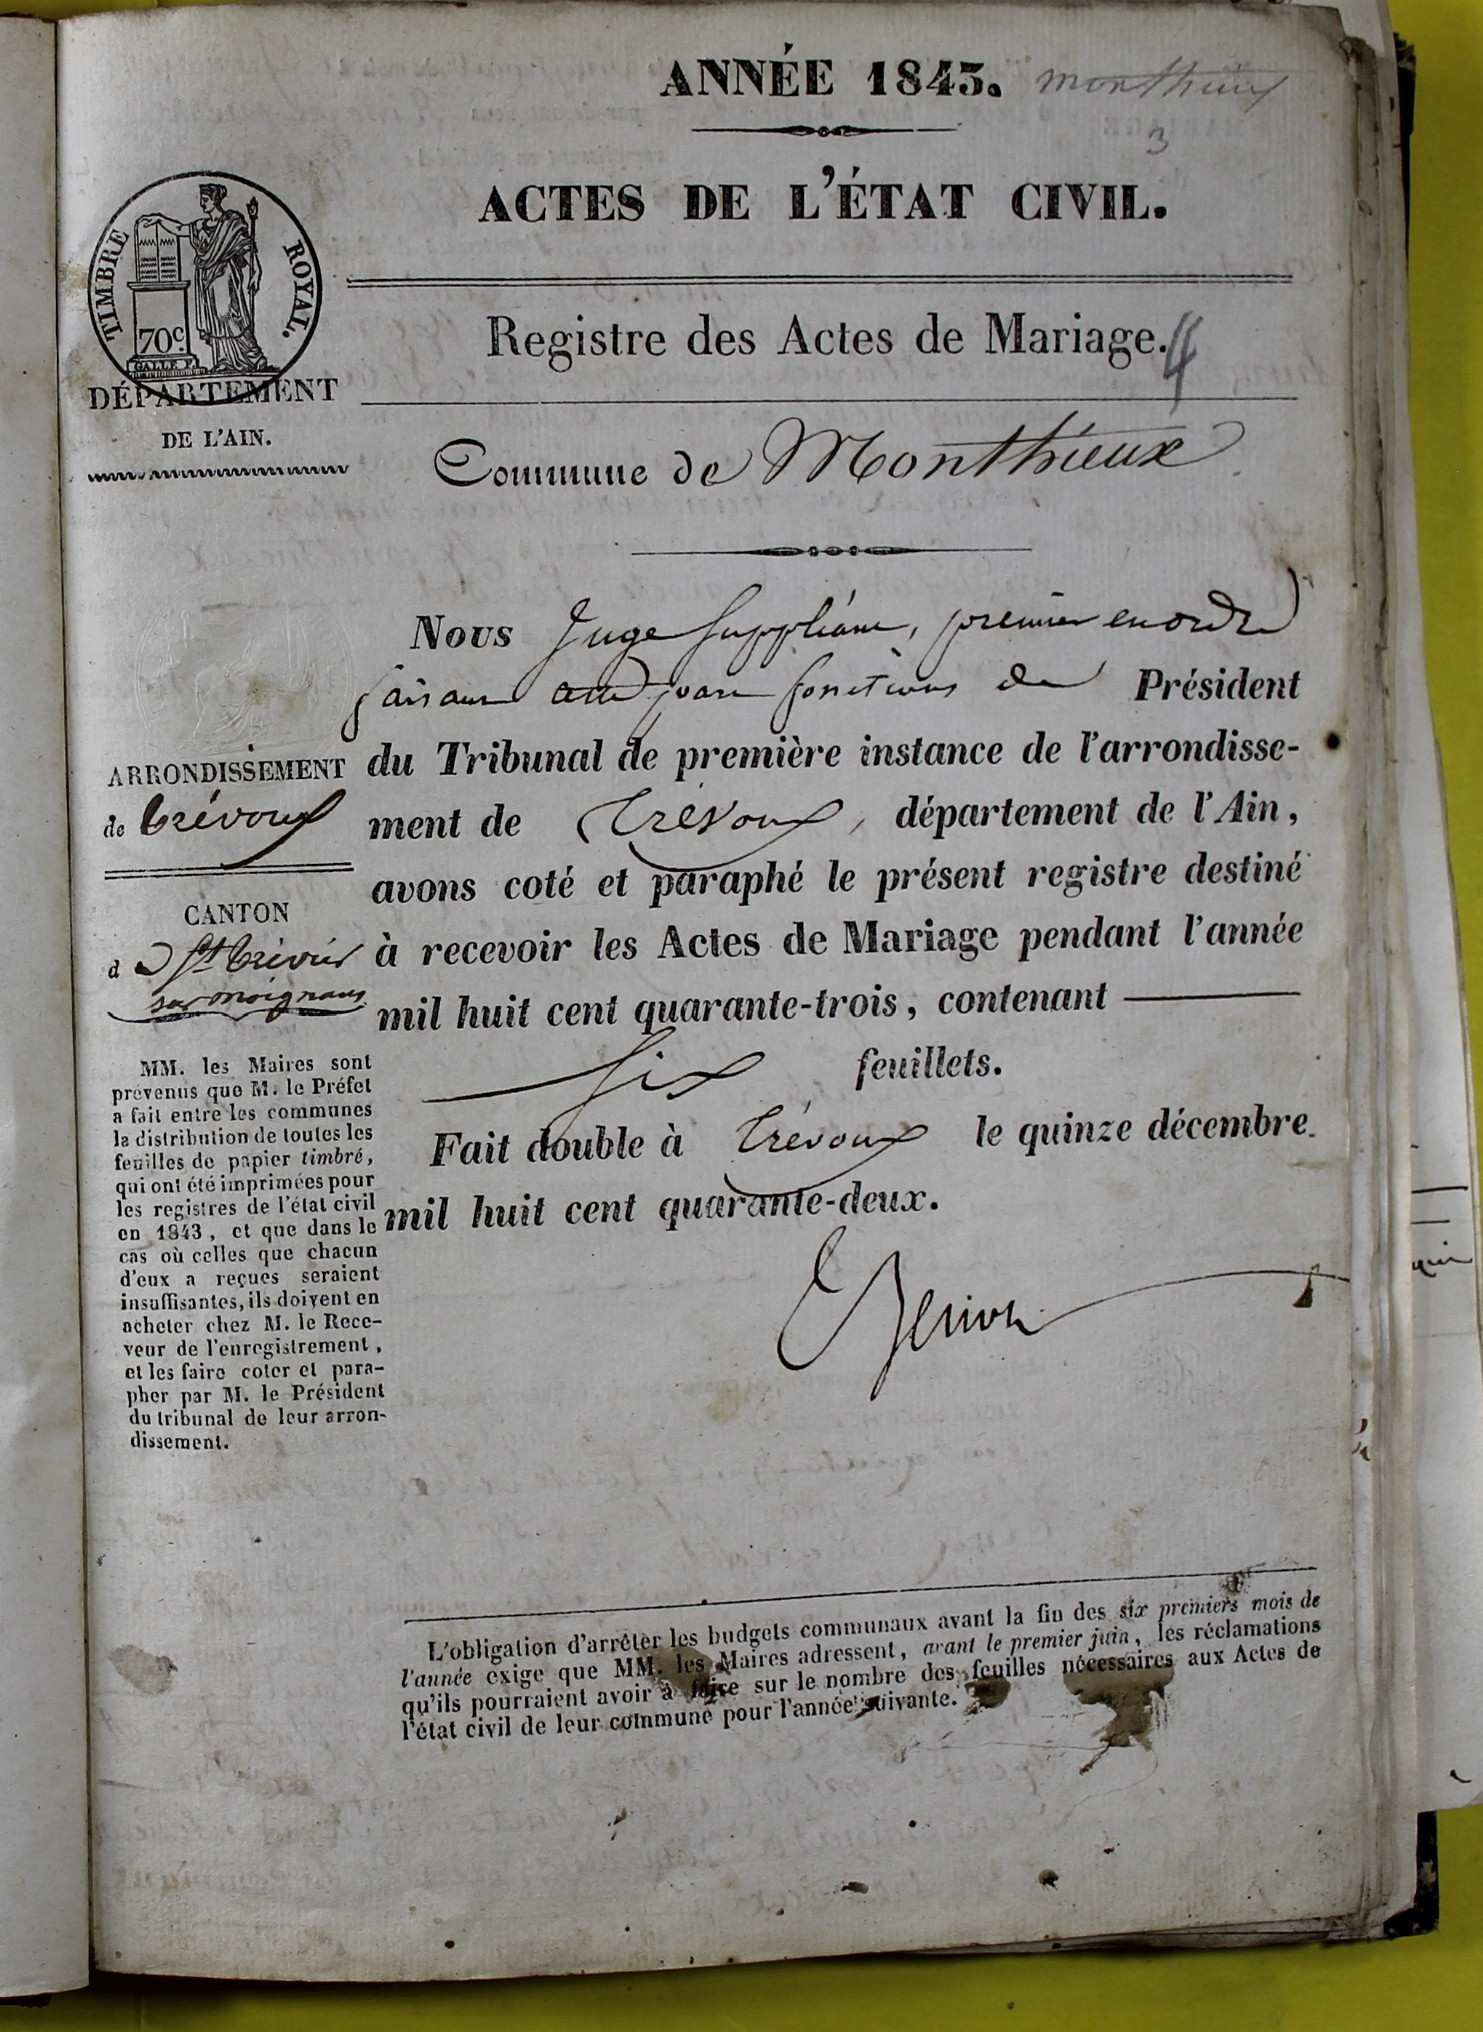 ANNÉE 1843. Monthieux
3
ACTES DE L'ÉTAT CIVIL.
TIMBRE ROYAL.
70c
GALLE F.
Registre des Actes de Mariage. 4
DÉPARTEMENT
DE L'AIN.
Commune de Monthieux
Nous Juge suppléant, premier en ordre
faisant fonctions de Président
du Tribunal de première instance de l'arrondisse-
ment de Trévoux, département de l'Ain,
avons coté et paraphé le présent registre destiné
à recevoir les Actes de Mariage pendant l'année
mil huit cent quarante-trois, contenant
six feuillets.
Fait double à Trévoux le quinze décembre
mil huit cent quarante-deux.
ARRONDISSEMENT
de Trévoux
CANTON
de St Trivier
sur moignans
MM. les Maires sont
prévenus que M. le Préfet
a fait entre les communes
la distribution de toutes les
feuilles de papier timbré,
qui ont été imprimées pour
les registres de l'état civil
en 1843, et que dans le
cas où celles que chacun
d'eux a reçues seraient
insuffisantes, ils doivent en
acheter chez M. le Rece-
veur de l'enregistrement,
et les faire coter et para-
pher par M. le Président
du tribunal de leur arron-
dissement.
L'obligation d'arrêter les budgets communaux avant la fin des six premiers mois de
l'année exige que MM. les Maires adressent, avant le premier juin, les réclamations
qu'ils pourraient avoir à faire sur le nombre des feuilles nécessaires aux Actes de
l'état civil de leur commune pour l'année suivante.